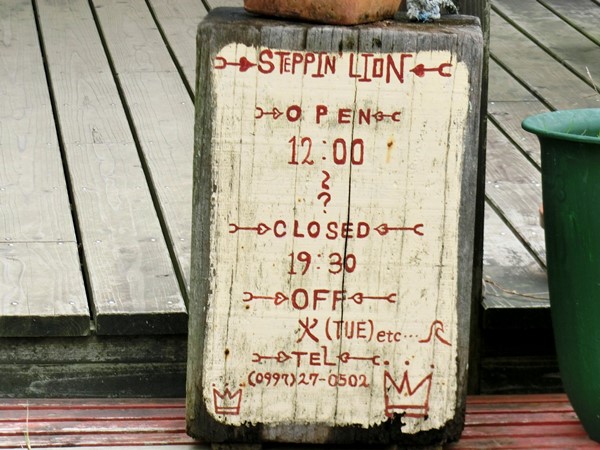 STEPPIN' LION
OPEN
12:00
~
?
CLOSED
19:30
OFF
火(TUE)etc…
TEL
(0997)27-0502